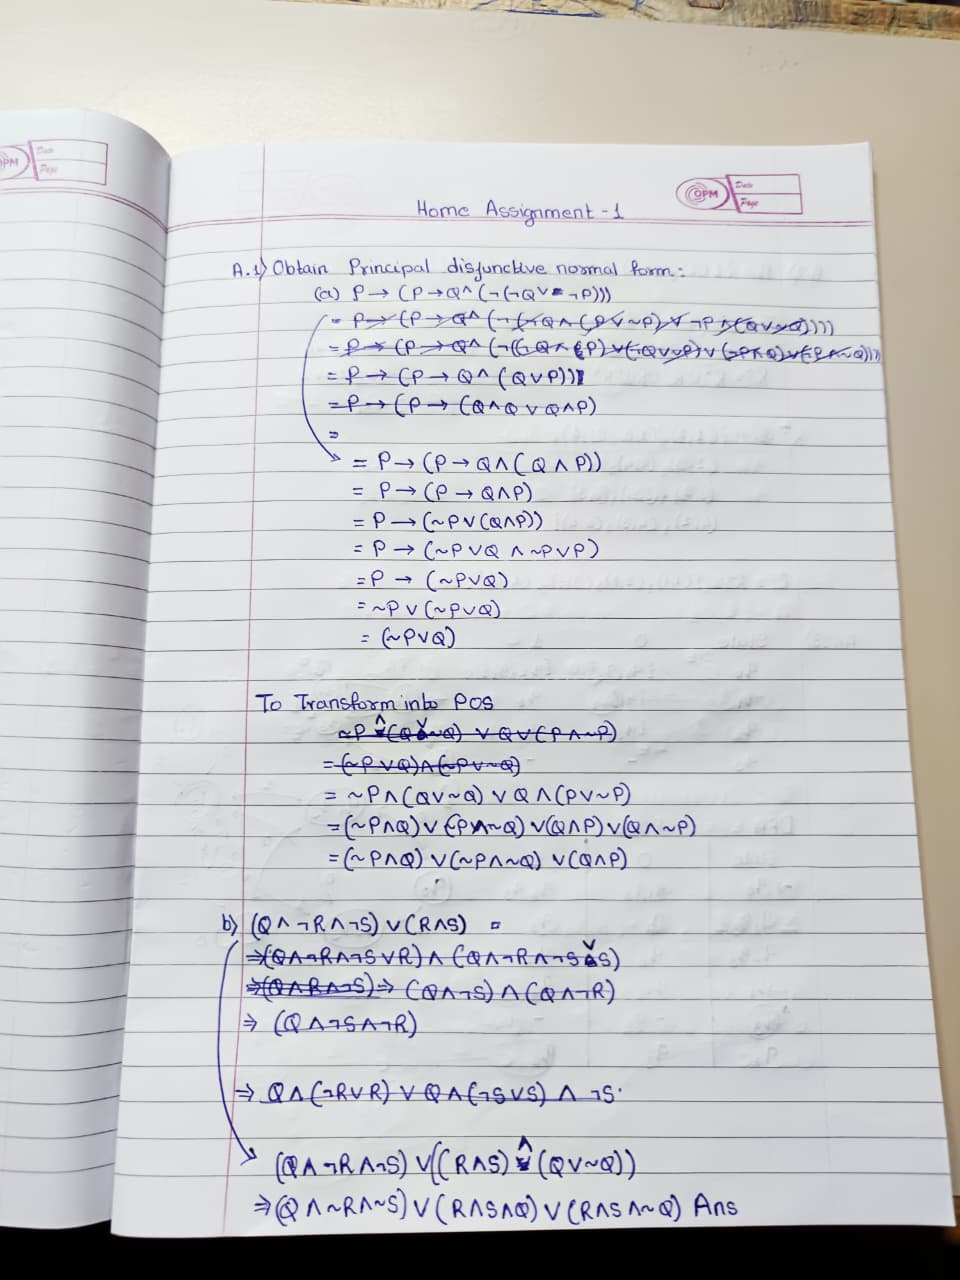 OPM
Date
Page
OPM
Date
Page
Home Assignment - 1
A.1) Obtain Principal disjunctive normal form:
(a) P → (P → Q ∧ (¬(¬Q ∨ ¬P)))
= P → (P → Q ∧ (Q ∨ P)))
= P → (P → (Q ∧ Q ∨ Q ∧ P)
=
= P → (P → Q ∧ (Q ∧ P))
= P → (P → Q ∧ P)
= P → (~P ∨ (Q ∧ P))
= P → (~P ∨ Q ∧ ~P ∨ P)
= P → (~P ∨ Q)
= ~P ∨ (~P ∨ Q)
= (~P ∨ Q)
To Transform into POS
~P ∧ (Q ∨ ~Q) ∨ Q ∨ (P ∧ ~P)
= (~P ∨ Q) ∧ (~P ∨ ~Q)
= ~P ∧ (Q ∨ ~Q) ∨ Q ∧ (P ∨ ~P)
= (~P ∧ Q) ∨ (~P ∧ ~Q) ∨ (Q ∧ P) ∨ (Q ∧ ~P)
= (~P ∧ Q) ∨ (~P ∧ ~Q) ∨ (Q ∧ P)
b) (Q ∧ ¬R ∧ ¬S) ∨ (R ∧ S) =
⇒ (Q ∧ ¬R ∧ ¬S ∨ R) ∧ (Q ∧ ¬R ∧ ¬S ∨ S)
⇒ (Q ∧ R ∧ ¬S) ⇒ (Q ∧ ¬S) ∧ (Q ∧ ¬R)
⇒ (Q ∧ ¬S ∧ ¬R)
⇒ Q ∧ (¬R ∨ R) ∨ Q ∧ (¬S ∨ S) ∧ ¬S
(Q ∧ ¬R ∧ ¬S) ∨ ((R ∧ S) ∧ (Q ∨ ~Q))
⇒ (Q ∧ ~R ∧ ~S) ∨ (R ∧ S ∧ Q) ∨ (R ∧ S ∧ ~Q) Ans